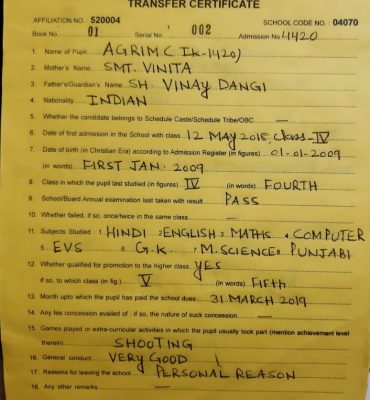 TRANSFER CERTIFICATE
AFFILIATION NO : 520004 SCHOOL CODE NO. : 04070
Book No 01 Serial No. 002 Admission No. 4420
1. Name of Pupil AGRIM (IK-1420)
2. Mother's Name. SMT. VINITA
3. Father's/Guardian's Name. SH. VINAY DANGI
4. Nationality INDIAN
5. Whether the candidate belongs to Schedule Caste/Schedule Tribe/OBC —
6. Date of first admission in the School with class. 12 MAY 2015, Class-IV
7. Date of birth (in Christian Era) according to Admission Register (in figures) 01-01-2009
(in words) FIRST JAN. 2009
8. Class in which the pupil last studied (in figures) IV (in words) FOURTH
9. School/Board Annual examination last taken with result. PASS
10. Whether failed, if so, once/twice in the same class —
11. Subjects Studied : 1 HINDI 2 ENGLISH 3 MATHS 4 COMPUTER
5. EVS 6. G.K. 7 M.SCIENCE 8 PUNJABI
12. Whether qualified for promotion to the higher class. YES
if so, to which class (in fig.) V (in words) Fifth
13. Month upto which the pupil has paid the school dues 31 MARCH 2019
14. Any fee concession availed of : if so, the nature of suck concession —
15. Games played or extra-curricular activities in which the pupil usually took part (mention achievement level
therein) SHOOTING
16. General conduct VERY GOOD
17. Reasons for leaving the school PERSONAL REASON
18. Any other remarks —